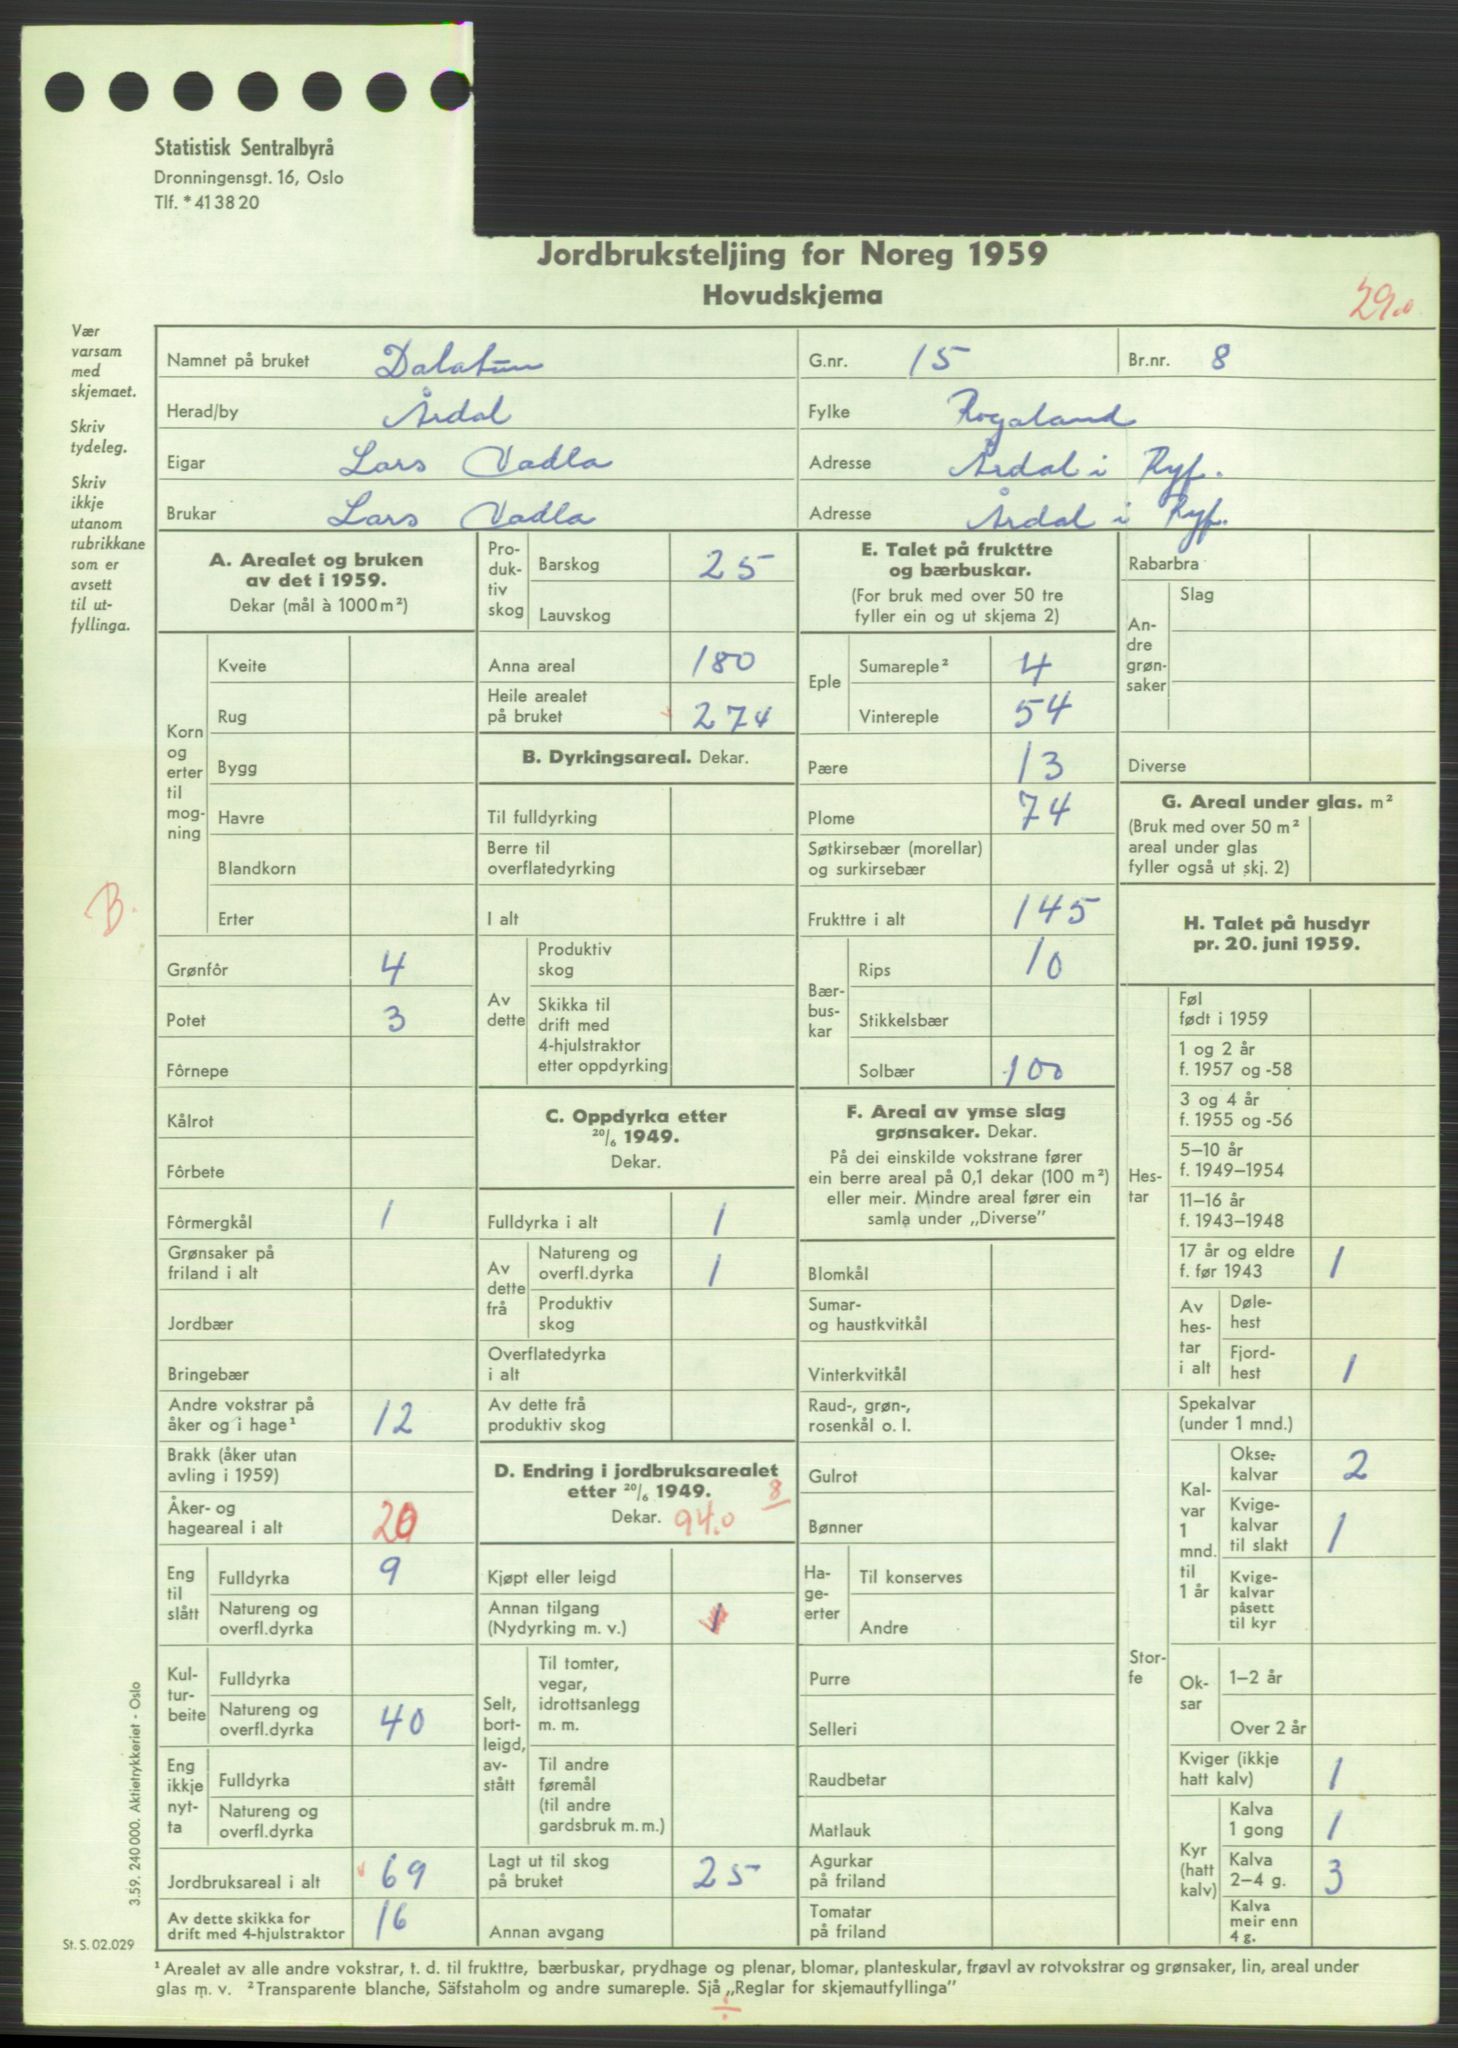 Statistisk Sentralbyrå
Dronningensgt. 16, Oslo
Tlf. * 41 38 20
Jordbruksteljing for Noreg 1959
Hovudskjema
29.0
Vær
varsam
med
skjemaet.
Skriv
tydeleg.
Skriv
ikkje
utanom
rubrikkane
som er
avsett
til ut-
fyllinga.
Namnet på bruket Dalatun G.nr. 15 Br.nr. 8
Herad/by Årdal Fylke Rogaland
Eigar Lars Vadla Adresse Årdal i Ryf.
Brukar Lars Vadla Adresse Årdal i Ryf.
A. Arealet og bruken
av det i 1959.
Dekar (mål à 1000 m²)
Korn
og
erter
til
mog-
ning
Kveite
Rug
Bygg
Havre
Blandkorn
Erter
B.
Grønfôr 4
Potet 3
Fôrnepe
Kålrot
Fôrbete
Fôrmergkål 1
Grønsaker på
friland i alt
Jordbær
Bringebær
Andre vokstrar på
åker og i hage¹ 12
Brakk (åker utan
avling i 1959)
Åker- og
hageareal i alt 20
Eng
til
slått
Fulldyrka 9
Natureng og
overfl.dyrka
Kul-
tur-
beite
Fulldyrka
Natureng og
overfl.dyrka 40
Eng
ikkje
nyt-
ta
Fulldyrka
Natureng og
overfl.dyrka
Jordbruksareal i alt 69
Av dette skikka for
drift med 4-hjulstraktor 16
Pro-
duk-
tiv
skog
Barskog 25
Lauvskog
Anna areal 180
Heile arealet
på bruket 274
B. Dyrkingsareal. Dekar.
Til fulldyrking
Berre til
overflatedyrking
I alt
Av
dette
Produktiv
skog
Skikka til
drift med
4-hjulstraktor
etter oppdyrking
C. Oppdyrka etter
20/6 1949.
Dekar.
Fulldyrka i alt 1
Av
dette
frå
Natureng og
overfl.dyrka 1
Produktiv
skog
Overflatedyrka
i alt
Av dette frå
produktiv skog
D. Endring i jordbruksarealet
etter 20/6 1949. 8
Dekar. 94.0
Kjøpt eller leigd
Annan tilgang
(Nydyrking m. v.) 1
Selt,
bort-
leigd,
av-
stått
Til tomter,
vegar,
idrottsanlegg
m. m.
Til andre
føremål
(til andre
gardsbruk m. m.)
Lagt ut til skog
på bruket 25
Annan avgang
E. Talet på frukttre
og bærbuskar.
(For bruk med over 50 tre
fyller ein og ut skjema 2)
Eple
Sumareple² 4
Vintereple 54
Pære 13
Plome 74
Søtkirsebær (morellar)
og surkirsebær
Frukttre i alt 145
Bær-
bus-
kar
Rips 10
Stikkelsbær
Solbær 100
F. Areal av ymse slag
grønsaker. Dekar.
På dei einskilde vokstrane fører
ein berre areal på 0,1 dekar (100 m²)
eller meir. Mindre areal fører ein
samla under „Diverse”
Blomkål
Sumar-
og haustkvitkål
Vinterkvitkål
Raud-, grøn-,
rosenkål o. l.
Gulrot
Bønner
Ha-
ge-
erter
Til konserves
Andre
Purre
Selleri
Raudbetar
Matlauk
Agurkar
på friland
Tomatar
på friland
Rabarbra
An-
dre
grøn-
saker
Slag
Diverse
G. Areal under glas. m²
(Bruk med over 50 m²
areal under glas
fyller også ut skj. 2)
H. Talet på husdyr
pr. 20. juni 1959.
Hes-
tar
Føl
født i 1959
1 og 2 år
f. 1957 og -58
3 og 4 år
f. 1955 og -56
5–10 år
f. 1949–1954
11–16 år
f. 1943–1948
17 år og eldre
f. før 1943 1
Av
hes-
tar
i alt
Døle-
hest
Fjord-
hest 1
Stor-
fe
Spekalvar
(under 1 mnd.)
Kal-
var
1
mnd.
til
1 år
Okse-
kalvar 2
Kvige-
kalvar
til slakt 1
Kvige-
kalvar
påsett
til kyr
Ok-
sar
1–2 år
Over 2 år
Kviger (ikkje
hatt kalv) 1
Kyr
(hatt
kalv)
Kalva
1 gong 1
Kalva
2–4 g. 3
Kalva
meir enn
4 g.
3.59. 240 000. Aktietrykkeriet - Oslo
St. S. 02.029
¹ Arealet av alle andre vokstrar, t. d. til frukttre, bærbuskar, prydhage og plenar, blomar, planteskular, frøavl av rotvokstrar og grønsaker, lin, areal under
glas m. v. ² Transparente blanche, Säfstaholm og andre sumareple. Sjå „Reglar for skjemautfyllinga”
÷